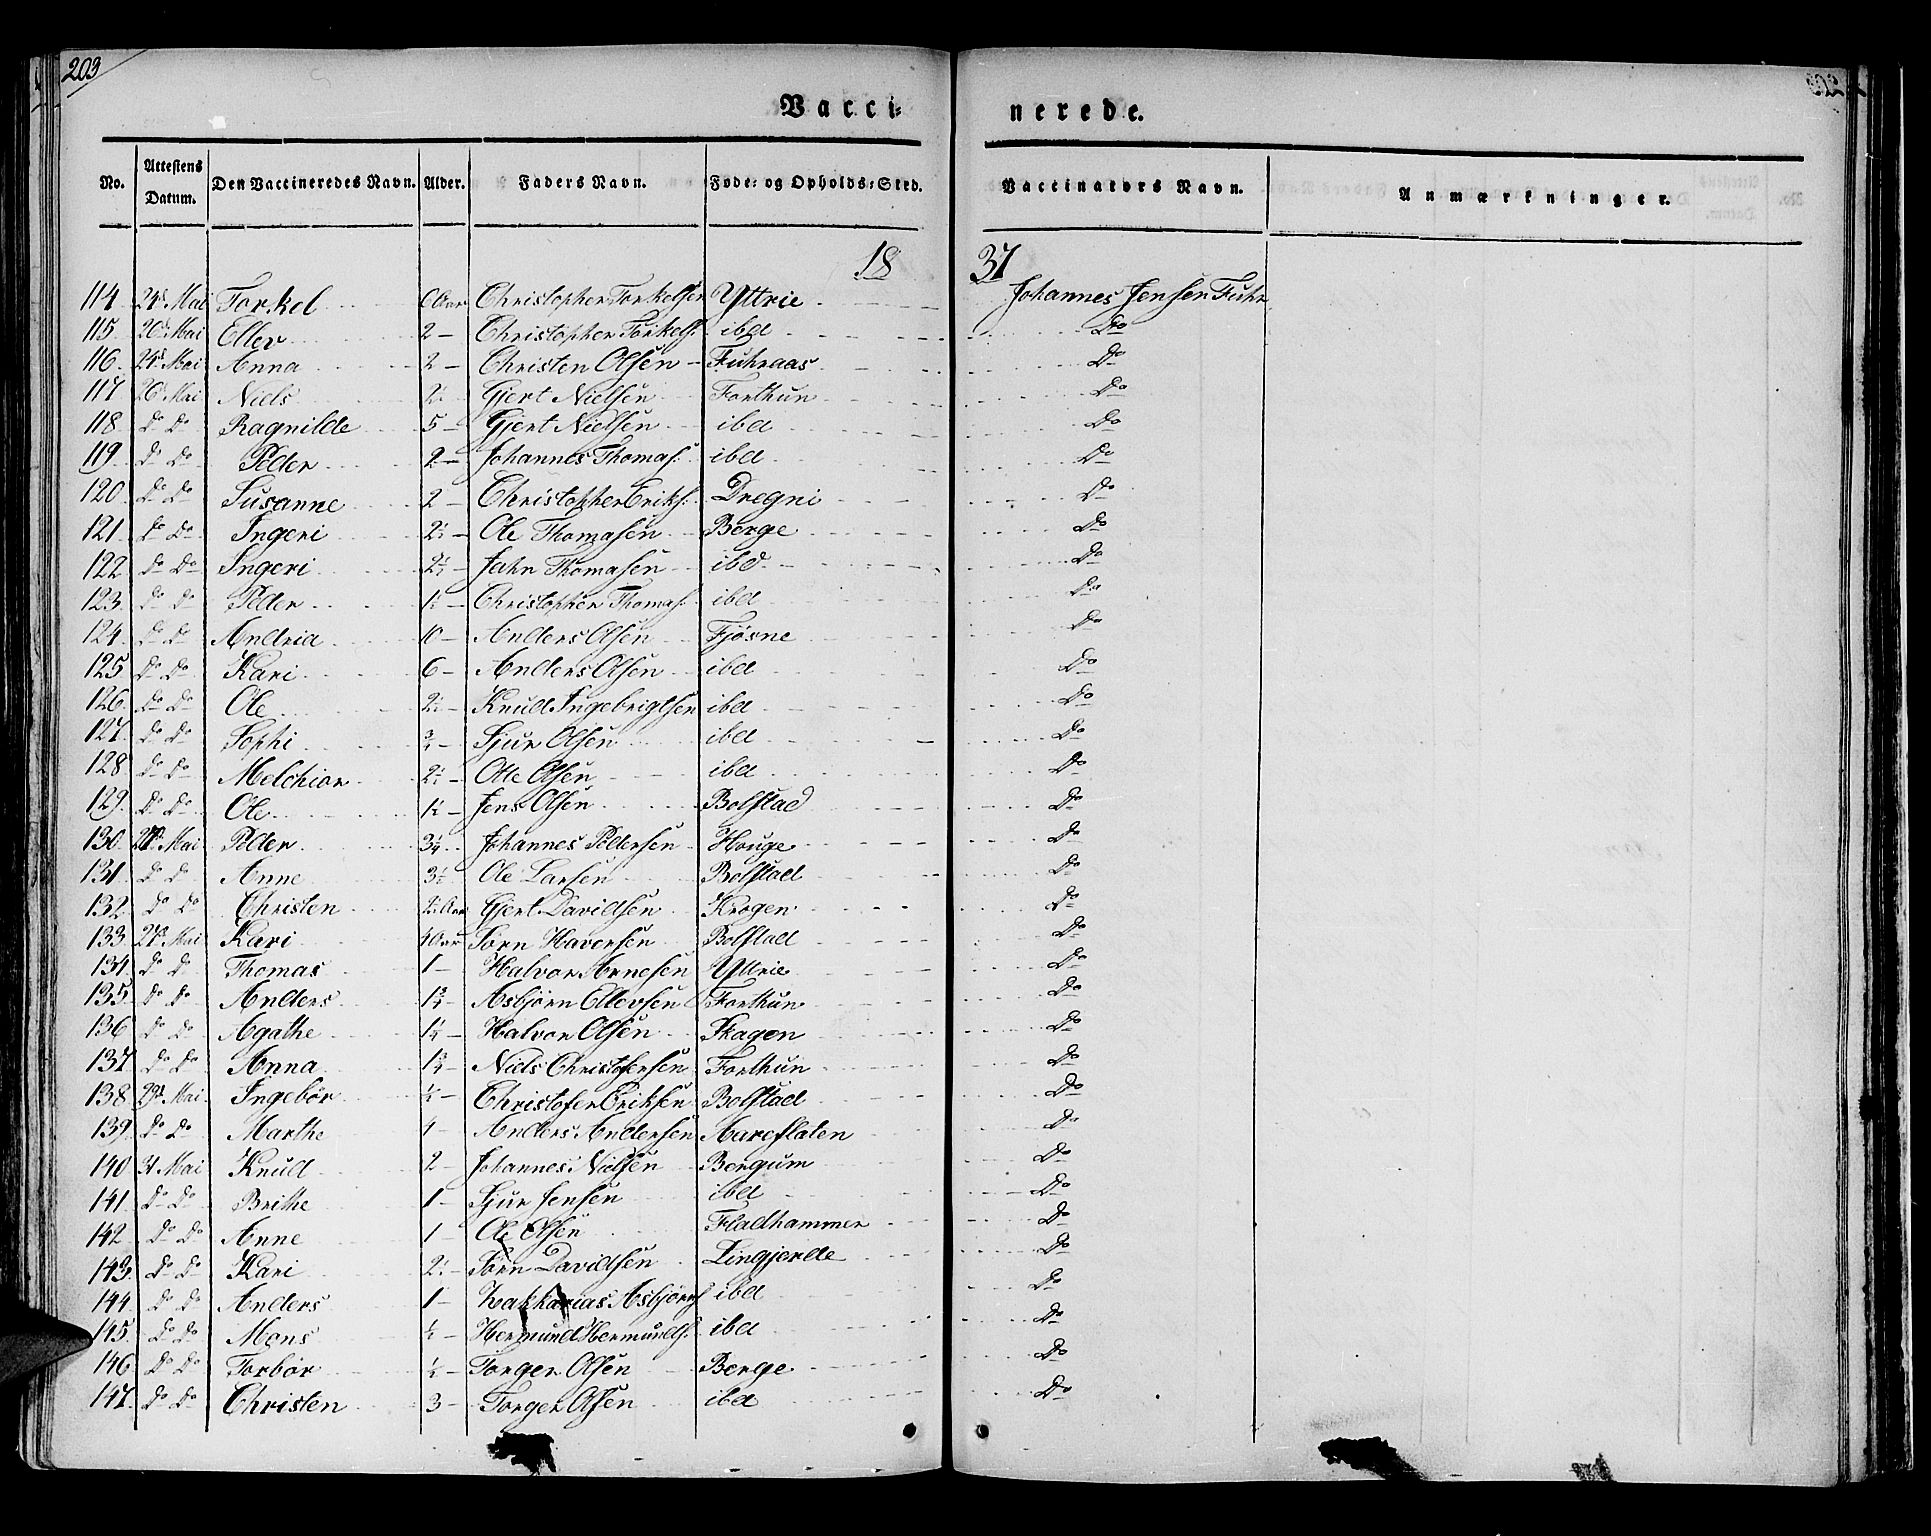 203
Vacci= nerede.
No. Attestens Datum. Den Vaccineredes Navn. Alder. Faders Navn. Føde= og Opholds=Sted. Vaccinators Navn. Anmærkninger.
18 37
114 24d Mai Torkel Aar Christopher Torkelsen Yttrie Johannes Jensen Fuhr
115. 26d Mai Ellev 2 - Christopher Torkels: ibd Do
116. 24d Mai Anna 2 - Christen Olsen - Fuhraas Do
117 26d Mai Niels Gjert Nielsen Forthun Do
118 Do Do Ragnilde 5 - Gjert Nielsen ibd Do
119 Do Do Peder 2 - Johannes Thomas: ibd Do
120 Do Do Susanne 2 - Christopher Eriks: Dregni Do
121 Do Do Ingeri 2½ - Ole Thomasen Berge Do
122 Do Do Ingeri 2½ - Jahn Thomasen ibd Do
123. Do Do Peder 1½ - Christopher Thomas: ibd Do
124. Do Do Andria 10 - Anders Olsen Fjøsne Do
125 Do Do Kari 6 - Anders Olsen ibd Do
126. Do Do Ole 2½ Knud Ingebrigtsen ibd Do
127. Do Do Sophi ¾ - Sjur Olsen ibd Do
128 Do Do Melchior 2½ - Otte Olsen ibd Do
129. Do Do Ole 1½ - Jens Olsen Bolstad Do
130. Mai Peder 3¼ Johannes Pedersen Houge Do
131 Do Do Anne 3½ Ole Larsen Bolstad Do
132 Do Do Christen 2½ Aar Gjert Davidsen Krogen Do
133 27d Mai Kari 4 Aar Sørn Haversen Bolstad Do
134. Do Do Thomas 1 - Halvor Arnesen Yttrie Do
135 Do Do Anders 1¾ - Asbjørn Ellevsen Forthun Do
136 Do Do Agathe 1¼ - Halvor Olsen Skagen Do
137 Do Do Anna 1¾ - Niels Christofersen Forthun Do
138 29d Mai Ingebør ½ - Christofer Eriksen Bolstad Do
139 Do Do Marthe 4 - Anders Andersen Aareflaten Do
140 31 Mai Knud 2 - Johannes Nielsen Bergum Do
141 Do Do Brithe 1 - Sjur Jensen ibd Do
142 Do Do Anne 1 - Ole Olsen Fladhammer Do
143 Do Do Kari 2½ - Sørn Davidsen Lingjerde Do
144 Do Do Anders 1 - Zakkarias Asbjørns ibd Do
145. Do Do Mons ½ - Hermund Hermunds: ibd Do
146 Do Do Torbør ½ - Torger Olsen Berge Do
147. Do Do Christen 3 - Torger Olsen ibd Do